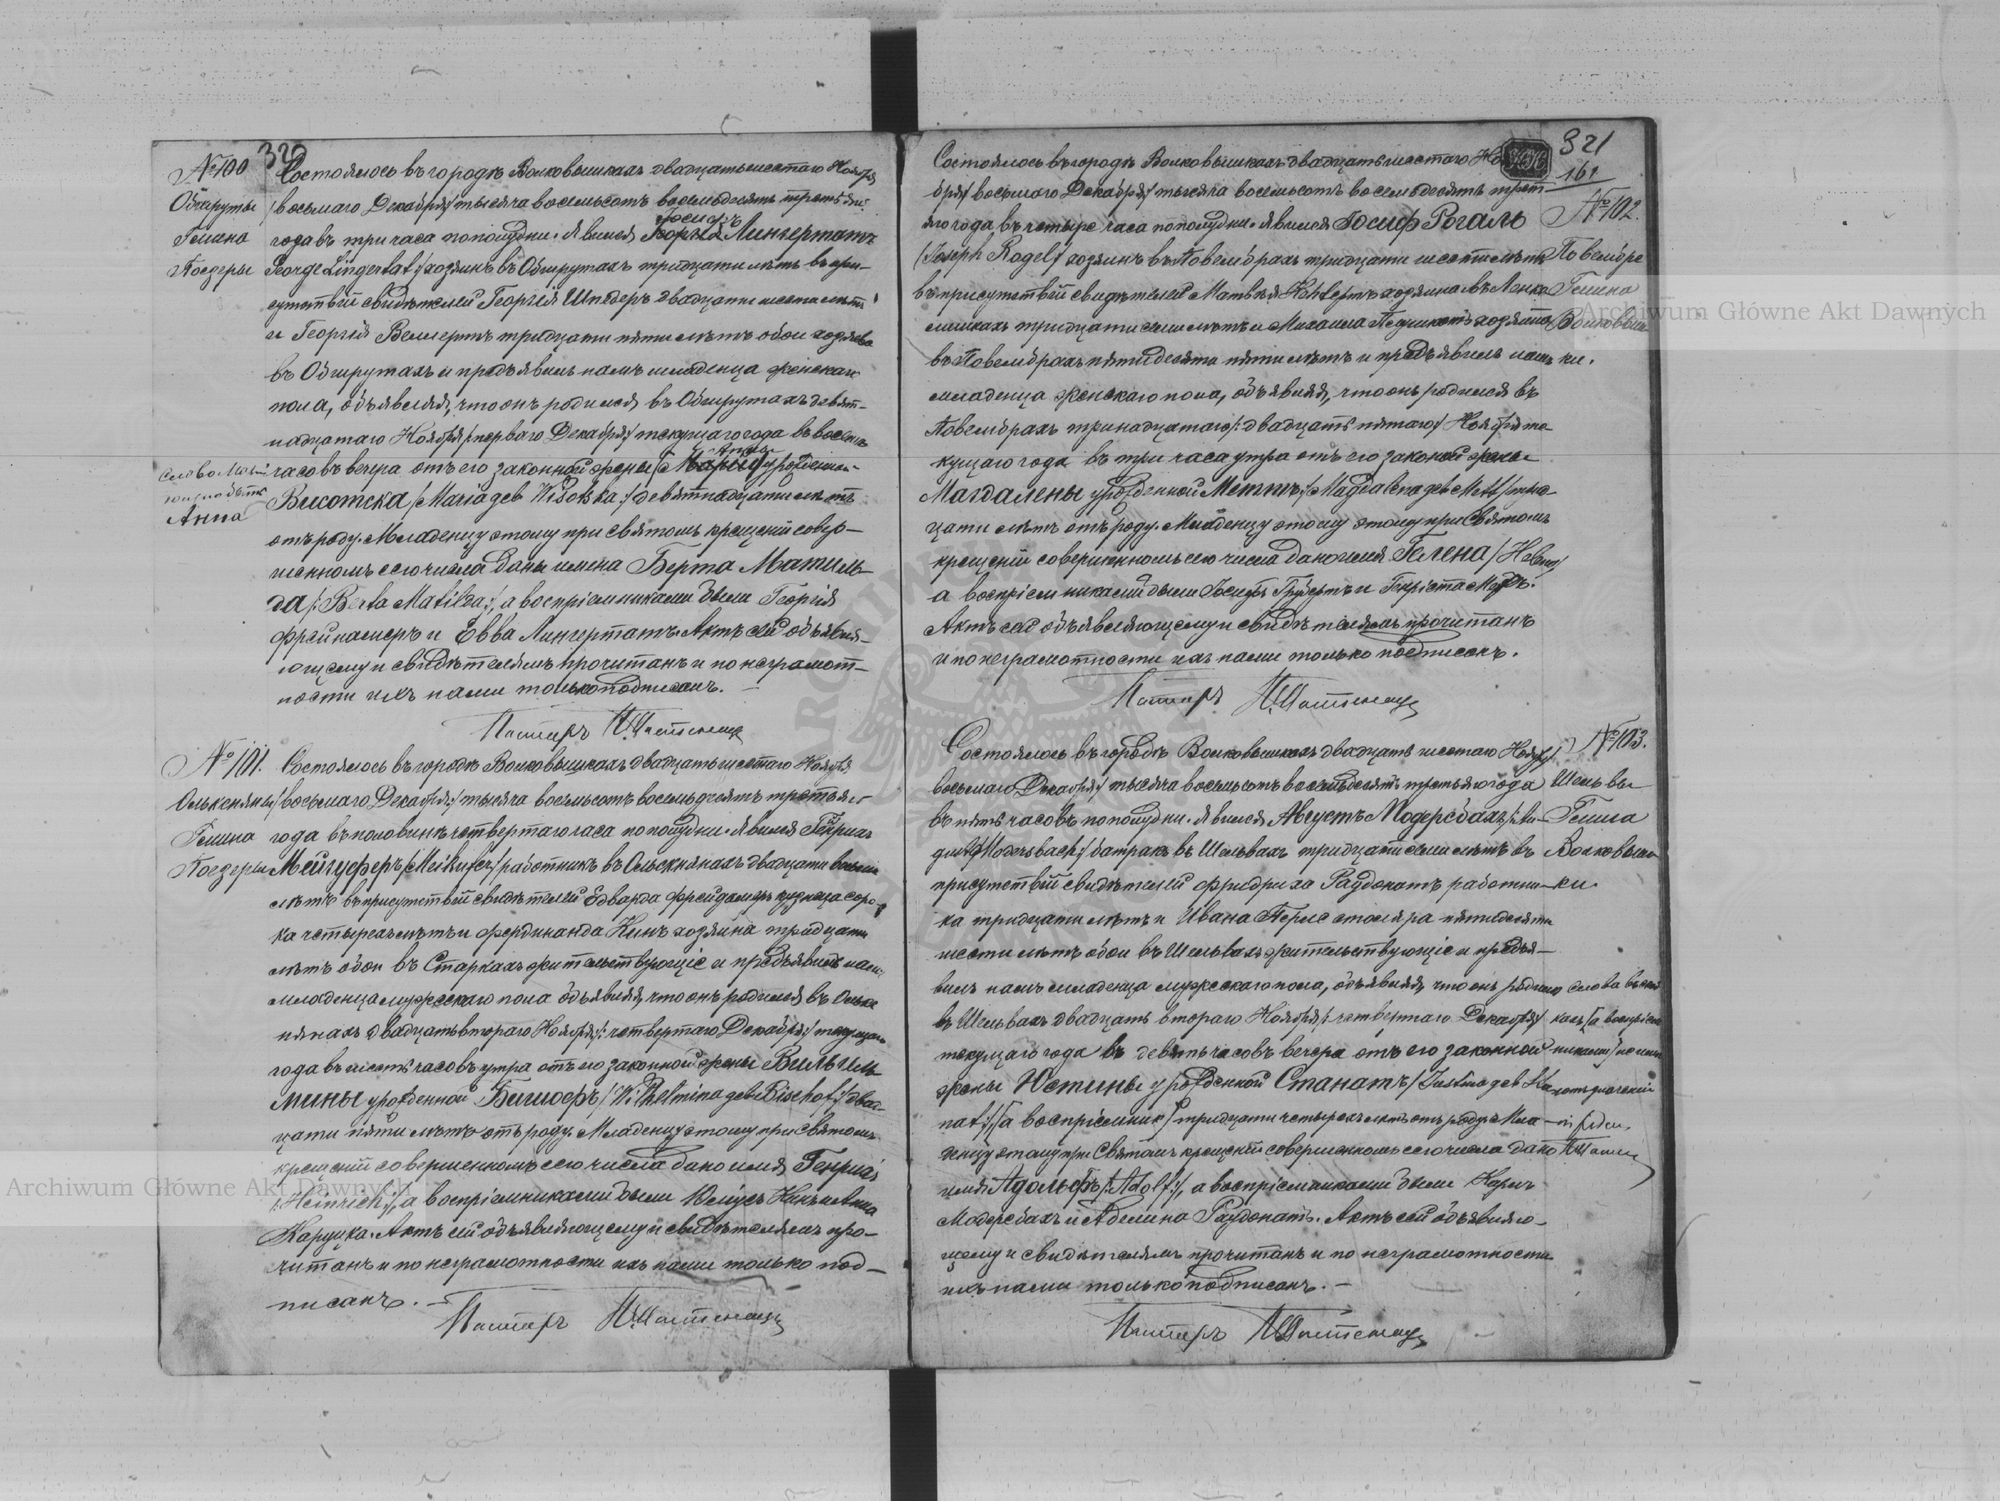 320
№ 100
Обшруты
Гмина
Поезеры
Состоялось въ городѣ Волковышкахъ двадцать шестаго Ноября
/восьмаго Декабря/ тысяча восемьсотъ восемьдесятъ третьяго
года въ три часа пополудни. Явился Георгій Лингертатъ
George Lingertat/ хозяинъ въ Обшрутахъ тридцати лѣтъ въ при-
сутствіи свидѣтелей Георгія Шнедеръ двадцати шести лѣтъ
и Георгія Веллертъ тридцати пяти лѣтъ обои хозяева
въ Обшрутахъ и предъявилъ намъ младенца женскаго
пола, объявляя, что онъ родился въ Обшрутахъ девят-
надцатаго Ноября /:перваго Декабря:/ текущаго года въ восемь
часовъ вечера отъ его законной жены /Маріи/ урожденной
Анны
Слово Марія
Анна
Висотска /Maria geb Wisotzka:/ девятнадцати лѣтъ
отъ роду. Младенцу этому при святомъ крещеніи совер-
шенномъ сего числа даны имена Берта Матиль-
да /:Berta Matilda:/, а воспріемниками были Георгій
Фрейнамеръ и Евва Лингертатъ. Актъ сей объявля-
ющему и свидѣтелямъ прочитанъ и по неграмот-
ности ихъ нами только подписанъ. —
Пасторъ
№ 101.
Олькеняны
Гмина
Поезеры
Состоялось въ городѣ Волковышкахъ двадцать шестаго Ноября
/восьмаго Декабря:/ тысяча восемьсотъ восемьдесятъ третьяго
года въ половинѣ четвертаго часа пополудни. Явился Генрихъ
Мейгуферъ /Meihufer/ работникъ въ Олькенянахъ двадцати восьми
лѣтъ въ присутствіи свидѣтелей Едварда Фрейдамеръ кузнеца соро-
ка четырехъ лѣтъ и Фердинанда Кинъ хозяина тридцати
лѣтъ обои въ Старкахъ жительствующіе и предъявилъ намъ
младенца мужескаго пола объявляя, что онъ родился въ Ольке
нянахъ двадцать втораго Ноября /:четвертаго Декабря:/ текущаго
года въ шесть часовъ утра отъ его законной жены Вильгель-
мины урожденной Бишофъ /Wilhelmina geb Bischof:/ двад-
цати пяти лѣтъ отъ роду. Младенцу этому при святомъ
крещеніи совершенномъ сего числа дано имя Генрихъ
/:Heinrich:/, а воспріемниками были Юліусъ Кинъ и Анна
Каруцка. Актъ сей объявляющему и свидѣтелямъ про-
читанъ и по неграмотности ихъ нами только под-
писанъ. —
Пасторъ
321
161
№ 102.
Повембре
Гмина
Волковыш-
ки.
Состоялось въ городѣ Волковышкахъ двадцать шестаго Но
бря/ восьмаго Декабря/ тысяча восемьсотъ восемьдесятъ треть
яго года въ четыре часа пополудни. Явился Іосифъ Рогаль
/Joseph Rogel/ хозяинъ въ Повембрахъ тридцати шести лѣтъ
въ присутствіи свидѣтелей Матвѣя хозяина въ
тридцати семи лѣтъ и Михаила хозяина
въ Повембрахъ пятидесяти пяти лѣтъ и предъявилъ намъ
младенца женскаго пола, объявляя, что онъ родился въ
Повембрахъ тринадцатаго /:двадцать пятаго/ Ноября те
кущаго года въ три часа утра отъ его законой жены
Магдалены урожденной Меттъ /Magdalena geb Mett/ трид-
цати лѣтъ отъ роду. Младенцу этому этому при Святомъ
крещеніи совершенномъ сего числа дано имя Гелена /Helena/
а воспріемниками были Іосифъ и
Актъ сей объявляющему и свидѣтелямъ прочитанъ
и по неграмотности ихъ нами только подписанъ.
Пасторъ
№ 103.
Шельвы
Гмина
Волковыш-
ки.
Состоялось въ городѣ Волковышкахъ двадцать шестаго Ноября/
восьмаго Декабря/ тысяча восемьсотъ восемьдесятъ третьяго года
въ пять часовъ пополудни. Явился Августъ Модерсбахъ /:Au-
gust Modersbach:/ батракъ въ Шельвахъ тридцати семи лѣтъ въ
присутствіи свидѣтелей Фридриха Раудонатъ работни-
ка тридцати лѣтъ и Ивана Перле столяра пятидесяти
шести лѣтъ обои въ Шельвахъ жительствующіе и предъя-
вилъ намъ младенца мужескаго пола, объявляя, что онъ родился
въ Шельвахъ двадцать втораго Ноября /:четвертаго Декабря/
текущаго года въ девять часовъ вечера отъ его законной
жены Юстины урожденной Станатъ /Justina geb Sta
nat:/ [а воспріемник] тридцати четырехъ лѣтъ отъ роду. Мла-
денцу этому при Святомъ крещеніи совершенномъ сего числа дано
имя Адольфъ /:Adolf:/, а воспріемниками были Карлъ
Модерсбахъ и Аделина Раудонатъ. Актъ сей объявляю-
щему и свидѣтелямъ прочитанъ и по неграмотности
ихъ нами только подписанъ. —
Слова
[а воспріем
никами]
Пасторъ
Archiwum Główne Akt Dawnych
Archiwum Główne Akt Dawnych